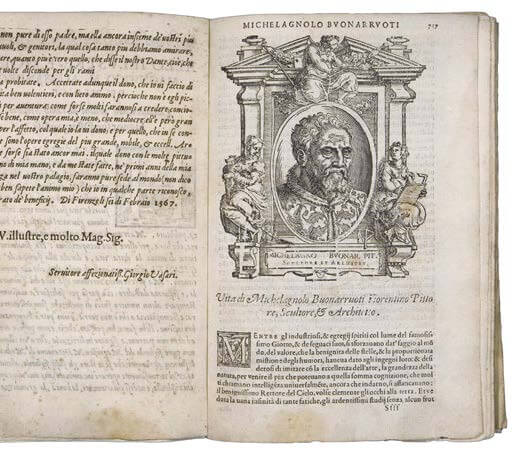 non pure di esso padre, ma ella ancora insieme de'vostri piu
& genitori, la qual cosa tanto piu debbiamo amirare,
quanto piu è vero quello, che disse il nostro Dante, cioè, che
volte discende per gli rami
probitate. Accettate adunque il dono, ch'io vi faccio di
ben volentieri, e con lieto animo: percioche non è egli pic
per auentura; come forse molti farannosi a credere, concio
bene, come opera mia, è meno, che mediocre; egli è però gran
per l'affetto, col quale io la vi dono; e per quello, che in se con
sono l'opere egregie del piu grande, nobile, & eccell. Are
forse sia stato ancor mai. il quale dono con le molte pittu
di mia mano, e da me state fatte, ne' primi anni della mia
nel vostro palagio, faranno pure fede al mondo (non dico
ben sapete l'animo mio) che io in qualche parte riconosco,
de' beneficij. Di Firenze li sei di Febraio 1567.
V. illustre, e molto Mag. Sig.
Servitore affezionatiss. Giorgio Vasari.
MICHELAGNOLO BVONARRVOTI
717
MICHELAGNO BVONAR. PIT.
SCVLTORE ET ARCHITET.
Vita di Michelagnolo Buonarruoti Fiorentino Pitto
re, Scultore, & Architetto.
MENTRE gl'industriosi, & egregij spiriti col lume del famosissimo
Giotto, & de' seguaci suoi, si sforzauano dar saggio al mō
do, del valore, che la benignità delle stelle, & la proportionata
mistione degli humori, haueua dato agli ingegni loro; & desi
derosi di imitare cō la grandezza della
natura, per venire il piu che poteuano a quella somma cognizione, che mol
ti chiamano intelligēza uniuersalmēte, ancora che indarno, si affaticauano:
il benignissimo Rettore del Cielo, volse clemente gli occhi alla terra. E ve
duta la uana infinità di tante fatiche, gli ardentissimi studij senza alcun frut
Sfff